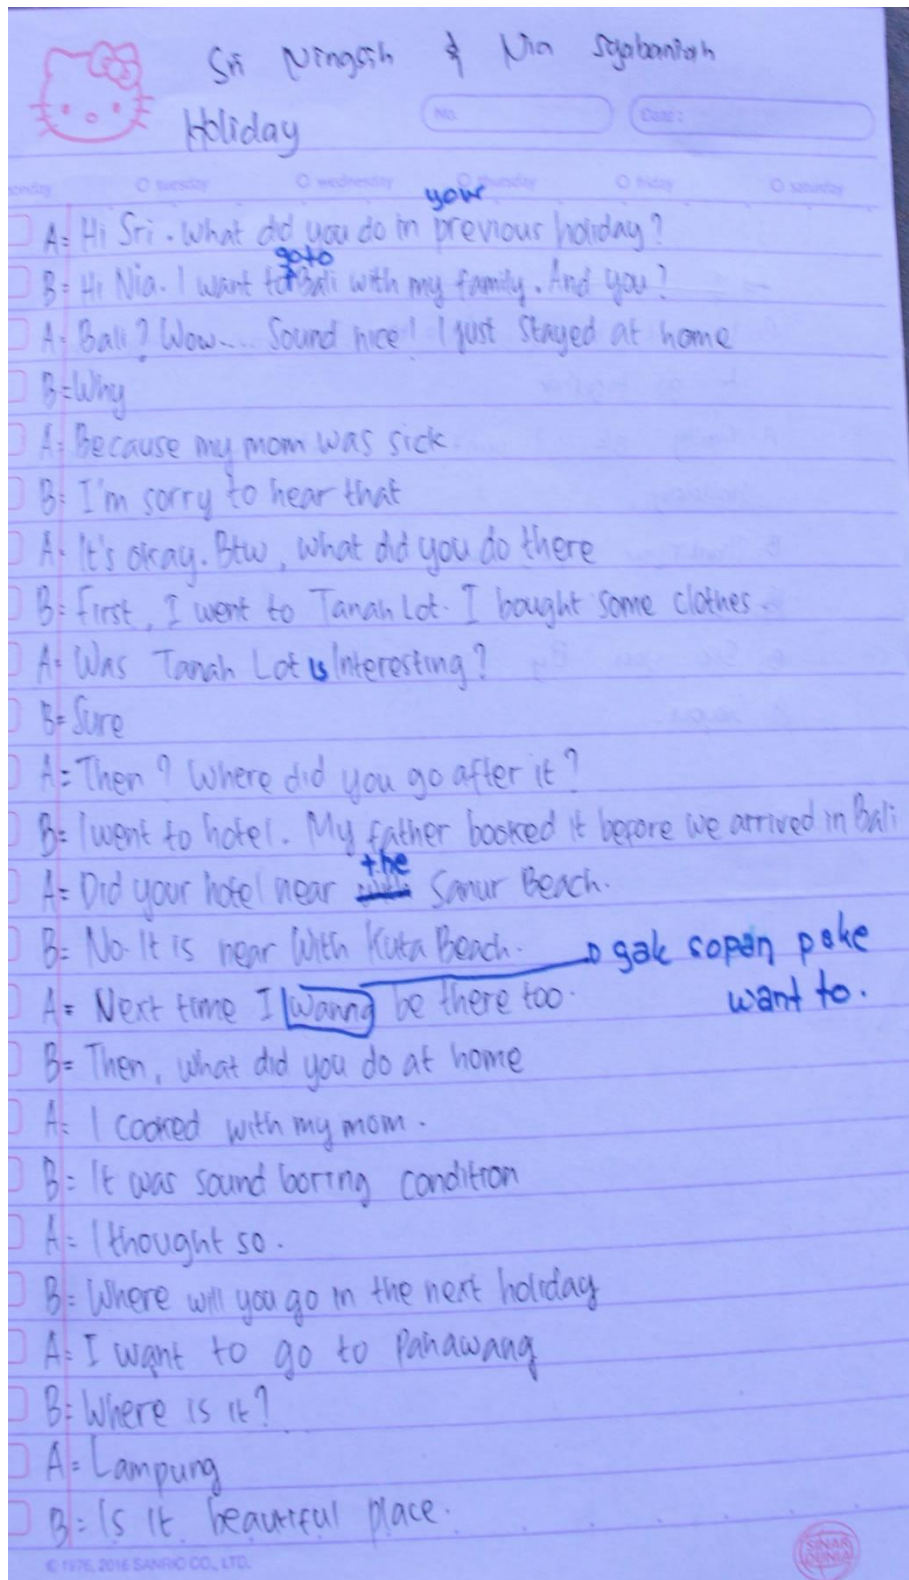 Sri Ningsih & Nia Syabaniah
Holiday
No.
Date :
tuesday wednesday thursday friday saturday
your
A= Hi Sri. What did you do in previous holiday?
go to
B= Hi Nia. I want to Bali with my family. And you?
A= Bali? Wow... Sound nice! I just stayed at home
B= Why
A= Because my mom was sick.
B= I'm sorry to hear that
A= It's okay. Btw, what did you do there
B= First, I went to Tanah Lot. I bought some clothes.
A= Was Tanah Lot is Interesting?
B= Sure
A= Then? Where did you go after it?
B= I went to hotel. My father booked it before we arrived in Bali
the
A= Did your hotel near Sanur Beach.
B= No. It is near With Kuta Beach. gak sopan pake
A= Next time I wanna be there too. want to.
B= Then, what did you do at home
A= I cooked with my mom.
B= It was sound boring condition
A= I thought so.
B= Where will you go in the next holiday
A= I want to go to Pahawang
B= Where is it?
A= Lampung
B= Is it beautiful place.
© 1976, 2016 SANRIO CO., LTD.
SINAR DUNIA